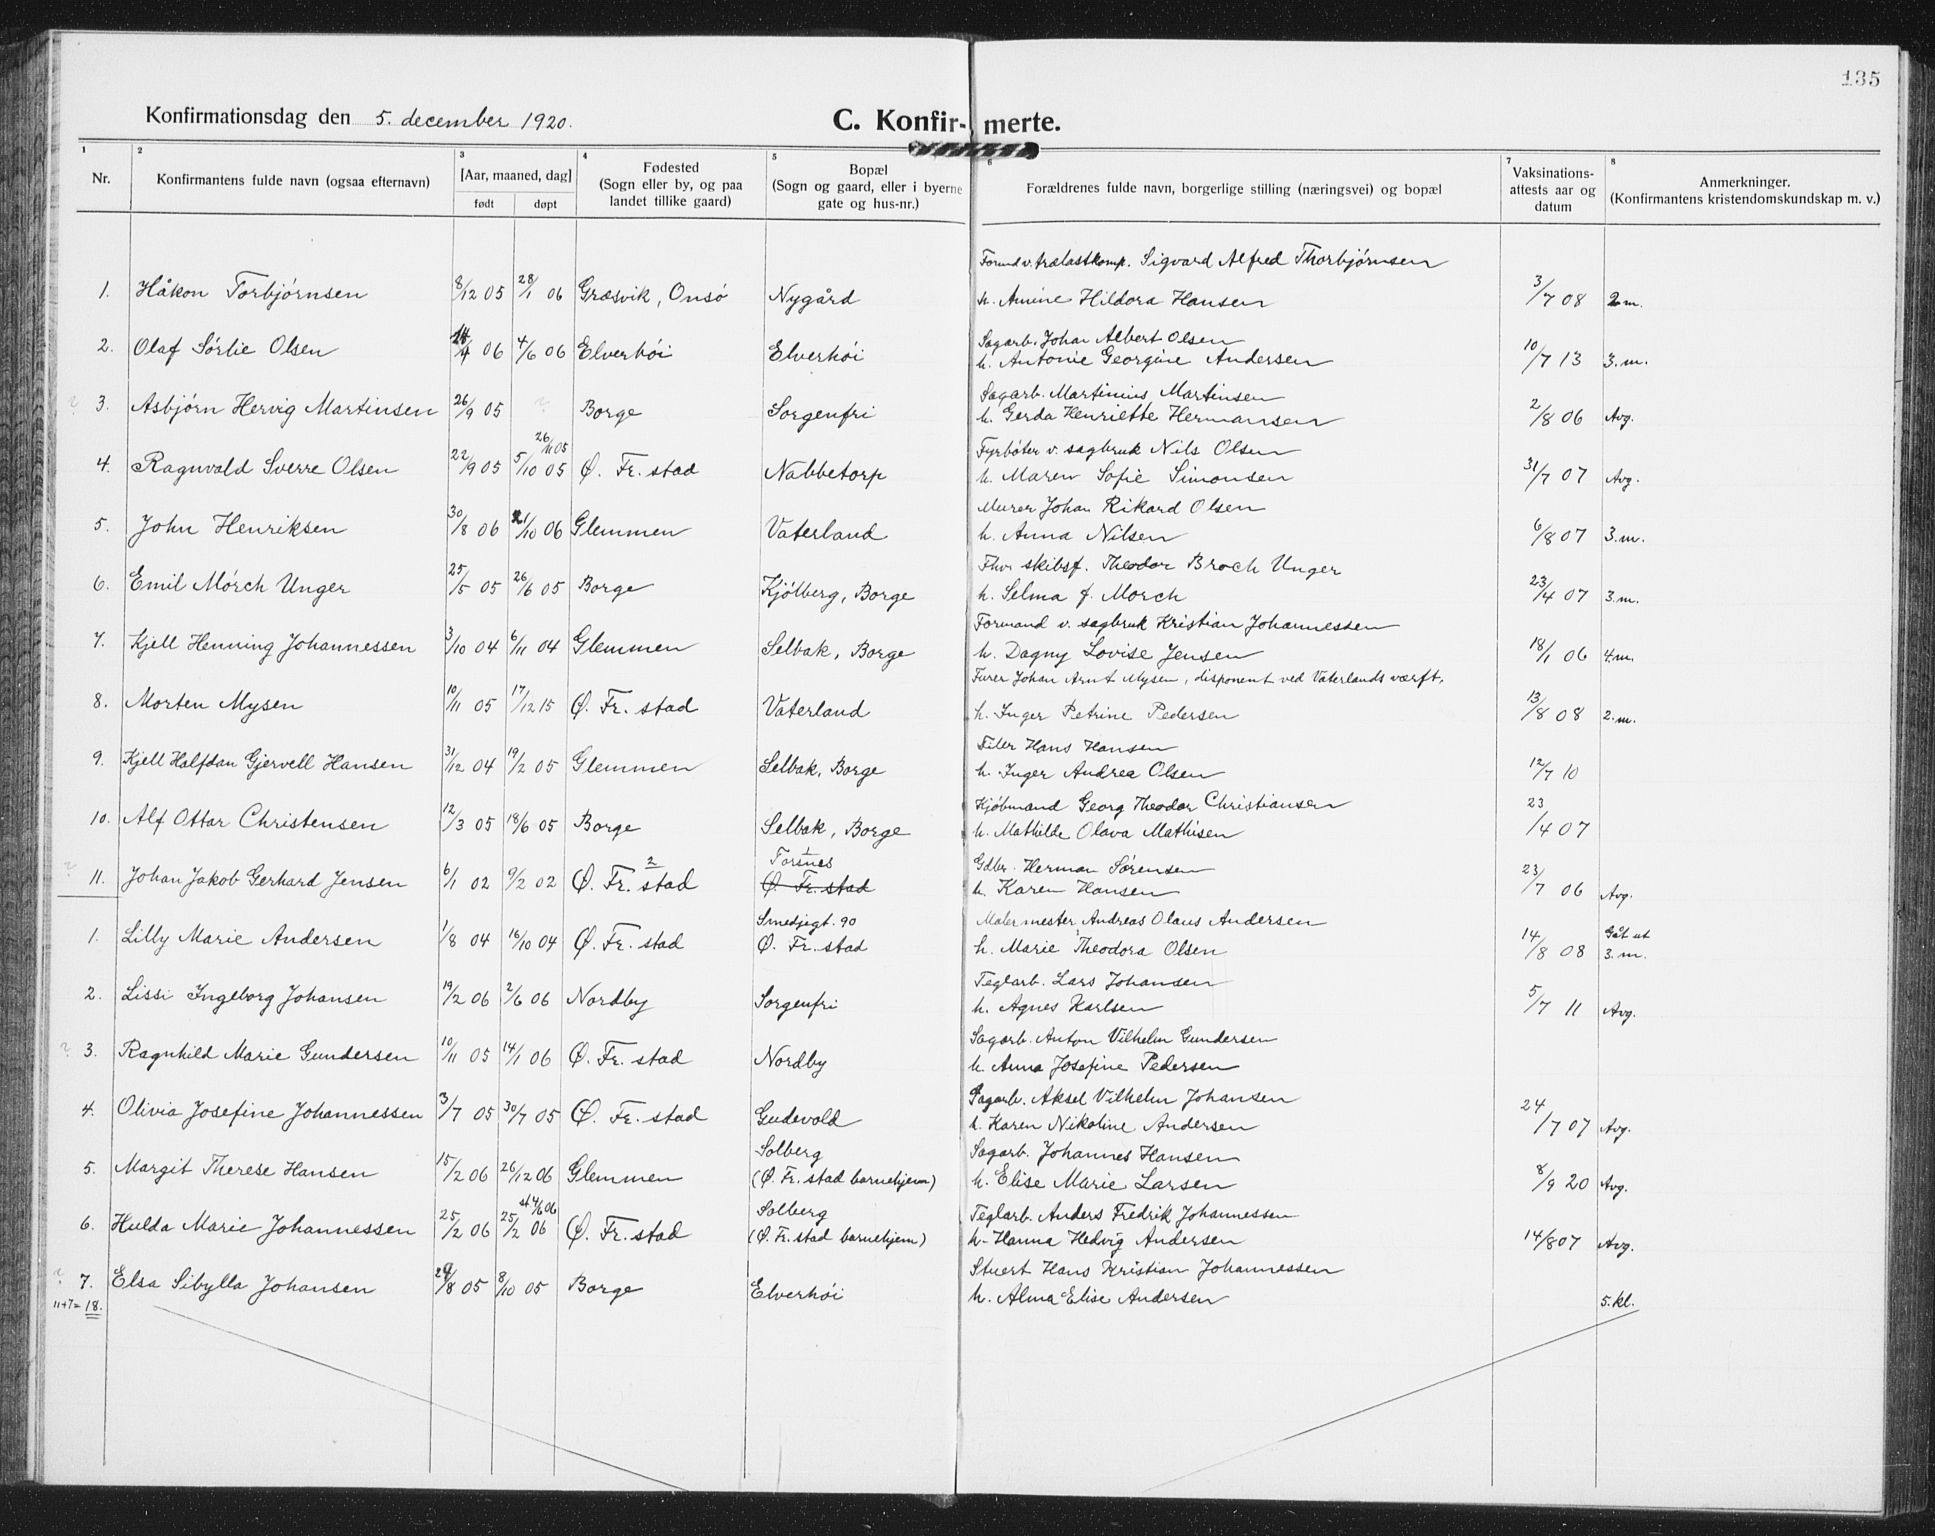 135
Konfirmationsdag den 5. december 1920.
C. Konfir- merte.
1 2 3 4 5 6 7 8
Nr.
Konfirmantens fulde navn (ogsaa efternavn)
[Aar, maaned, dag]
født døpt
Fødested
(Sogn eller by, og paa
landet tillike gaard)
Bopæl
(Sogn og gaard, eller i byerne
gate og hus-nr.)
Forældrenes fulde navn, borgerlige stilling (næringsvei) og bopæl
Vaksinations-
attests aar og
datum
Anmerkninger.
(Konfirmantens kristendomskundskap m. v.)
Formd v. trælastkomp. Sigvard Alfred Thorbjørnsen
1. Håkon Torbjørnsen 8/12 05 28/1 06 Græsvik, Onsø Nygård h. Amine Hildora Hansen 3/7 08 2 m.
Sagarb. Johan Albert Olsen
2. Olaf Sørlie Olsen 14/4 06 4/6 06 Elverhöi Elverhöi h. Antonie Georgine Andersen 10/7 13 3. m.
Sagarb. Martinius Martinsen
? 3. Asbjørn Hervig Martinsen 26/9 05 ? Borge Sorgenfri h. Gerda Henriette Hermansen 2/8 06 Avg.
26/11 05 Fyrbøter v. sagbruk Nils Olsen
4. Ragnvald Sverre Olsen 22/9 05 5/10 05 Ø. Fr. stad Nabbetorp h. Maren Sofie Simonsen 31/7 07 Avg.
Murer Johan Rikard Olsen
5. John Henriksen 30/8 06 21/10 06 Glemmen Vaterland h. Anna Nilsen 6/8 07 3. m.
Fhv. skibsf. Theodor Broch Unger
6. Emil Mørch Unger 25/5 05 26/6 05 Borge Kjølberg, Borge h. Selma f. Morch 23/4 07 3. m.
Formand v. sagbruk Kristian Johannessen
7. Kjell Henning Johannessen 3/10 04 6/11 04 Glemmen Selbak, Borge h. Dagny Lovise Jensen 18/1 06 4. m.
Furer Johan Arnt Mysen, disponent ved Vaterlands værft.
8. Morten Mysen 10/11 05 17/12 15 Ø. Fr. stad Vaterland h. Inger Petrine Pedersen 13/8 08 2. m.
Filer Hans Hansen
9. Kjell Halfdan Gjervell Hansen 31/12 04 19/2 05 Glemmen Selbak, Borge h. Inger Andrea Olsen 12/7 10
Kjøbmand Georg Theodor Christiansen
10. Alf Ottar Christensen 12/3 05 18/6 05 Borge Selbak, Borge h. Mathilde Olava Mathisen 23/4 07
Torsnes Gdbr. Herman Sørensen
? 11. Johan Jakob Gerhard Jensen 6/1 02 9/2 02 Ø. Fr. stad 2 Ø. Fr. stad h. Karen Hansen 23/7 06 Avg.
Smedjegt. 90 Malermester Andreas Olaus Andersen Gåt ut
1. Lilly Marie Andersen 1/8 04 16/10 04 Ø. Fr. stad Ø. Fr. stad h. Marie Theodora Olsen 14/8 08 3. m.
Teglarb. Lars Johansen
2. Lissi Ingeborg Johansen 19/2 06 2/6 06 Nordby Sorgenfri h. Agnes Karlsen 5/7 11 Avg.
Sagarb. Anton Vilhelm Gundersen
? 3. Ragnhild Marie Gundersen 10/11 05 14/1 06 Ø. Fr. stad Nordby h. Anna Josefine Pedersen
Sagarb. Aksel Vilhelm Johansen
4. Olivia Josefine Johannessen 3/7 05 30/7 05 Ø. Fr. stad Gudevold h. Karen Nikoline Andersen 24/7 07 Avg.
Solberg Sagarb. Johannes Hansen
5. Margit Therese Hansen 15/2 06 26/12 06 Glemmen (Ø. Fr. stad barnehjem) h. Elise Marie Larsen 8/9 20 Avg.
st 4/6 06 Solberg Teglarb. Anders Fredrik Johannessen
6. Hulda Marie Johannessen 25/2 06 25/2 06 Ø. Fr. stad (Ø. Fr. stad barnehjem) h. Hanna Hedvig Andersen 14/8 07 Avg.
Stuert Hans Kristian Johannessen
? 7. Elsa Sibylla Johansen 29/8 05 8/10 05 Borge Elverhöi h. Alma Elise Andersen 5. kl.
11+7=18.